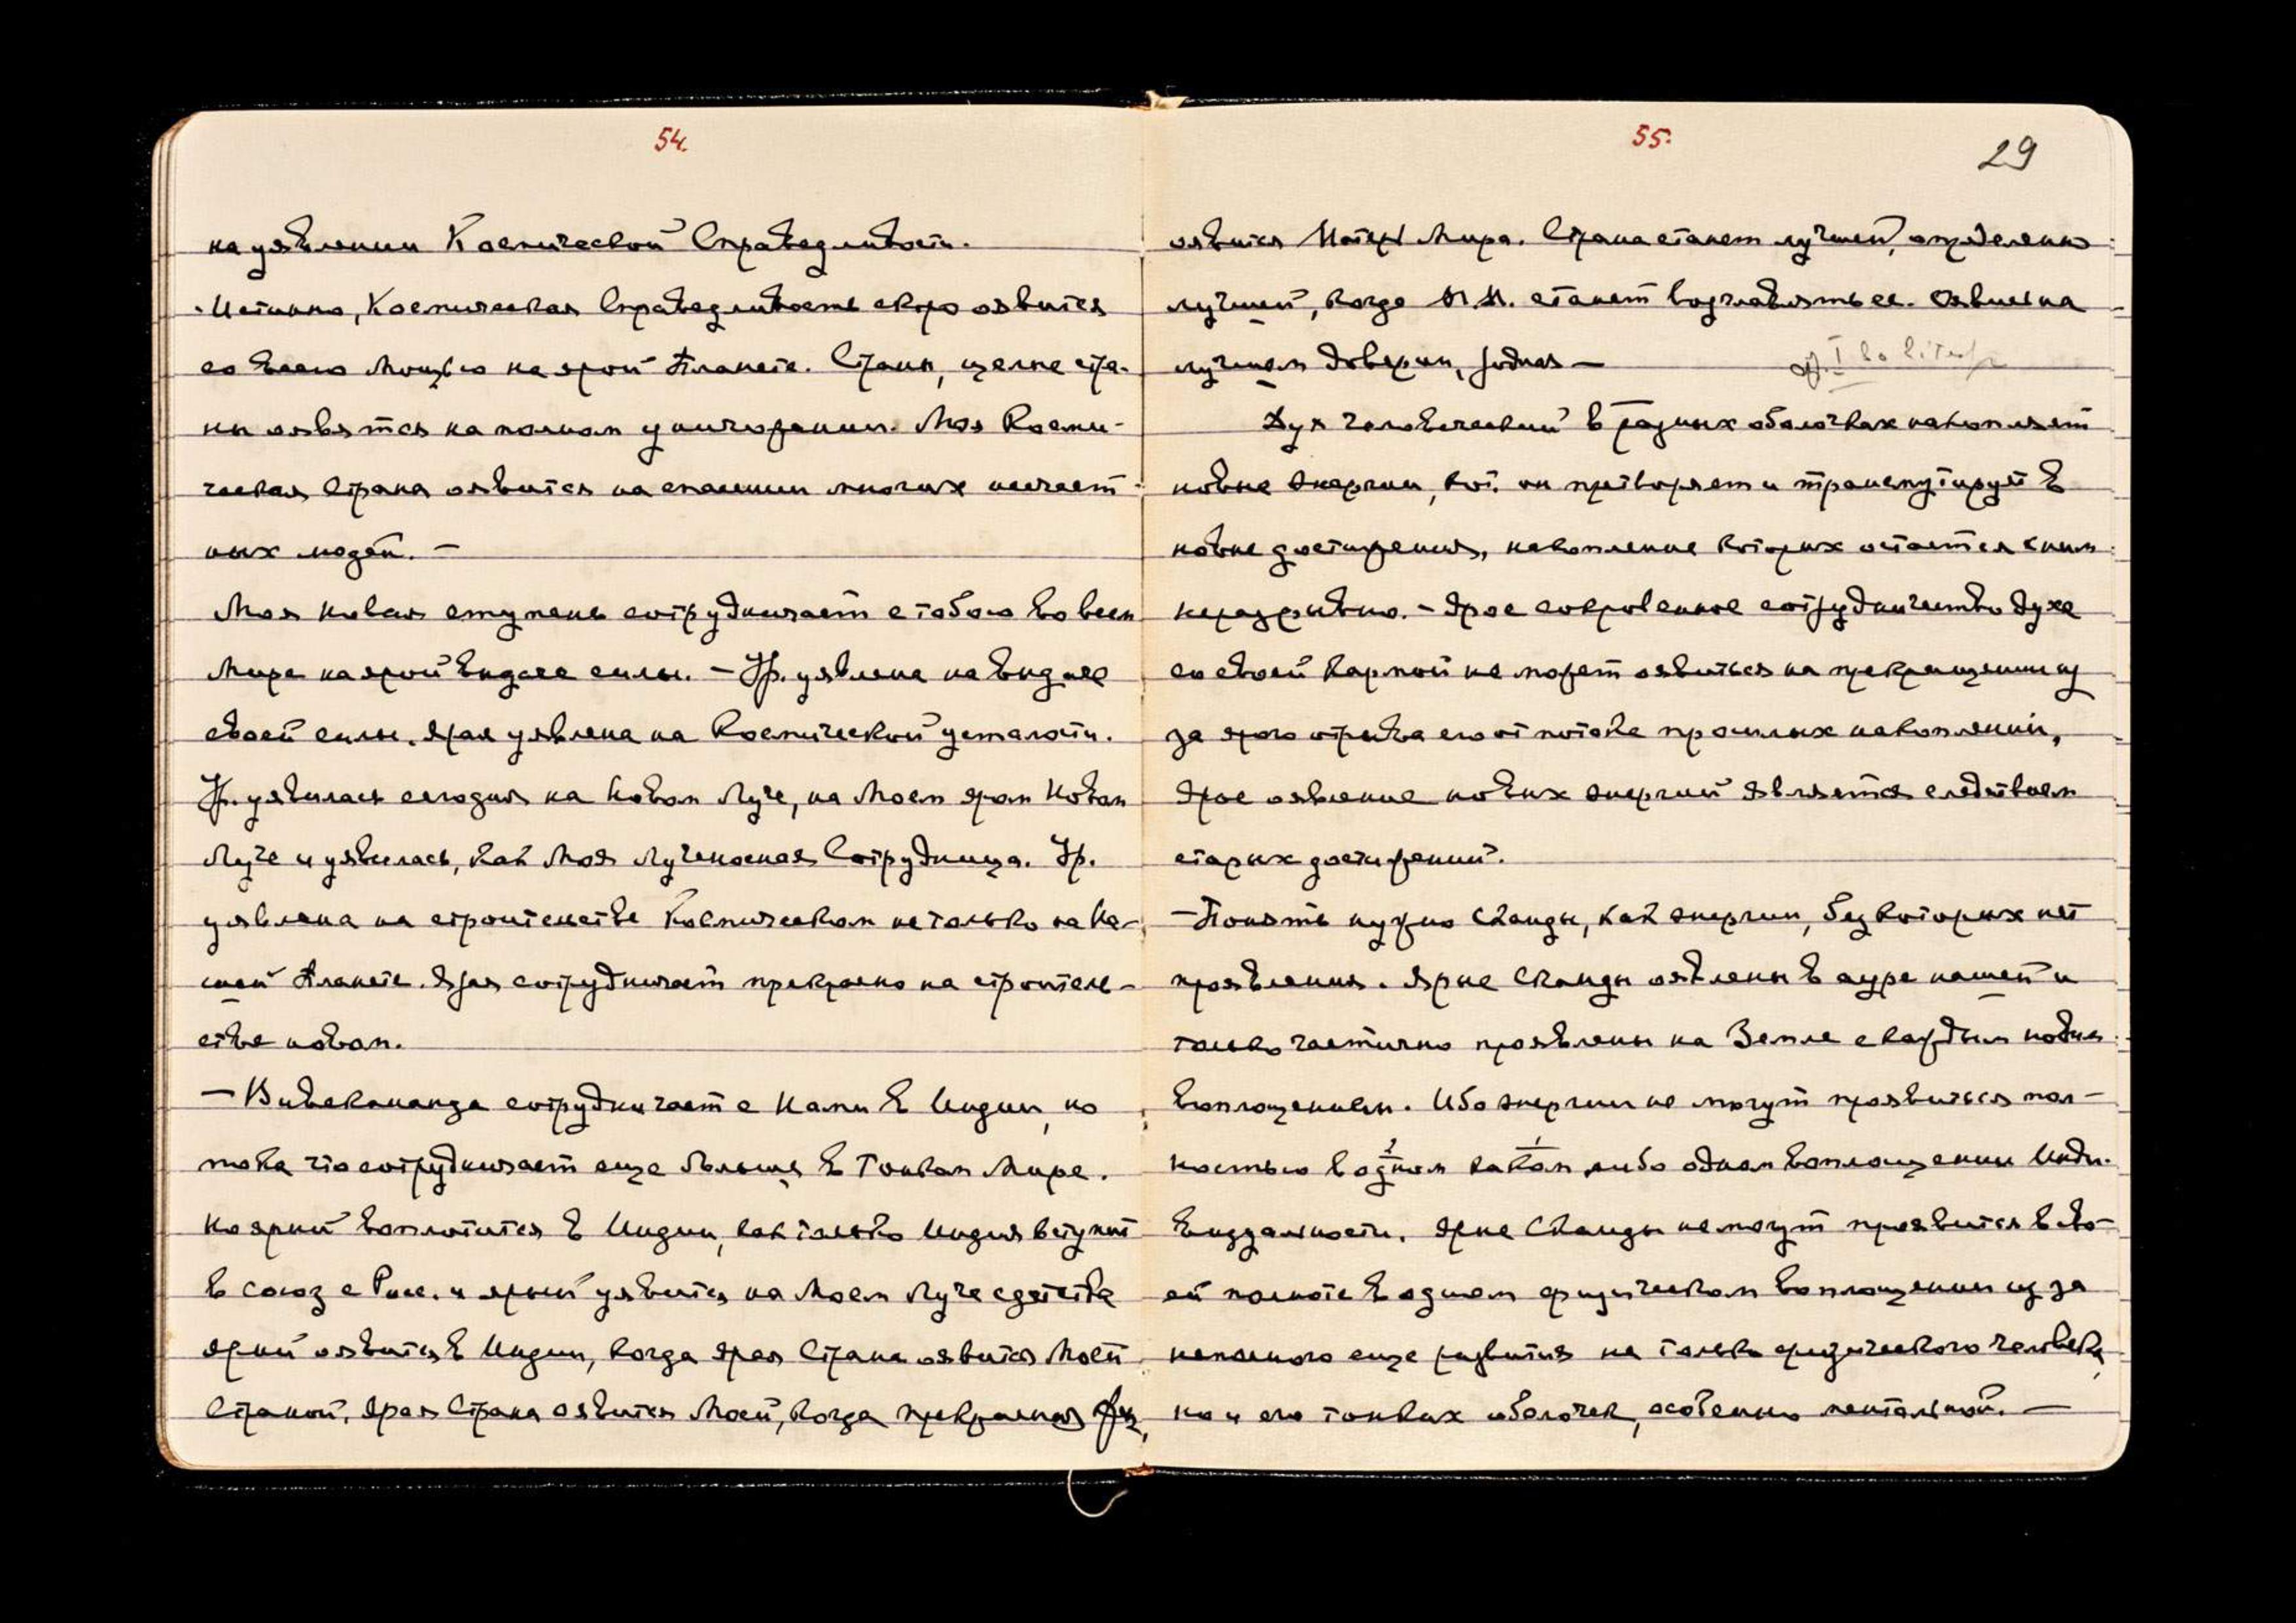 54.
на уявлении Космической Справедливости.
- Истинно, Космическая Справедливость скоро оявится
со всею Мощью на ярой Планете. Страны, целые стра-
ны оявятся на полном уничтожении. Моя Косми-
ческая Страна оявится на спасении многих несчаст-
ных людей. —
Моя новая ступень сотрудничает с тобою во всем
Мире на ярой выдаче силы. — Ур. уявлена на выдаче
своей силы. Ярая уявлена на Космической усталости.
Ур. уявилась сегодня на Новом Луче, на Моем яром Новом
Луче и уявилась, как Моя Лученосная Сотрудница. Ур.
уявлена на строительстве Космическом не только на На-
шей Планете. Ярая сотрудничает прекрасно на строитель-
стве новом.
— Вивекананда сотрудничает с Нами в Индии, но
пока что сотрудничает еще больше в Тонком Мире.
Но ярый воплотится в Индии, как только Индия вступит
в союз с Росс. и ярый уявится на Моем Луче с детства
ярый оявится в Индии, когда ярая Страна оявится Моей
Страной. Ярая Страна оявится Моей, когда прекрасная
55.
29
оявится Матерь Мира. Страна станет лучшей, определенно
лучшей, когда М. М. станет возглавлять ее. Оявись на
лучшем доверии, родная —
Дух человеческий в разных оболочках накопляет
новые энергии, кот. он претворяет и трансмутирует в
новые достижения, накопление которых остается с ним
неразрывно. — Ярое сокровенное сотрудничество духа
со своей кармой не может оявиться на прекращении из
за ярого отрыва его от потока прошлых накоплений,
Ярое оявление новых энергий является следствием
старых достижений.
— Понять нужно Сканды, как энергии, без которых нет
проявления. Ярые Сканды оявлены в ауре нашей и
только частично проявлены на Земле с каждым новым
воплощением. Ибо энергии не могут проявиться пол-
ностью в одном каком либо одном воплощении Инди-
видуальности. Ярые Сканды не могут проявится в сво-
ей полноте в одном физическом воплощении из за
неполного еще развития не только физического человека,
но и его тонких оболочек, особенно ментальной. —